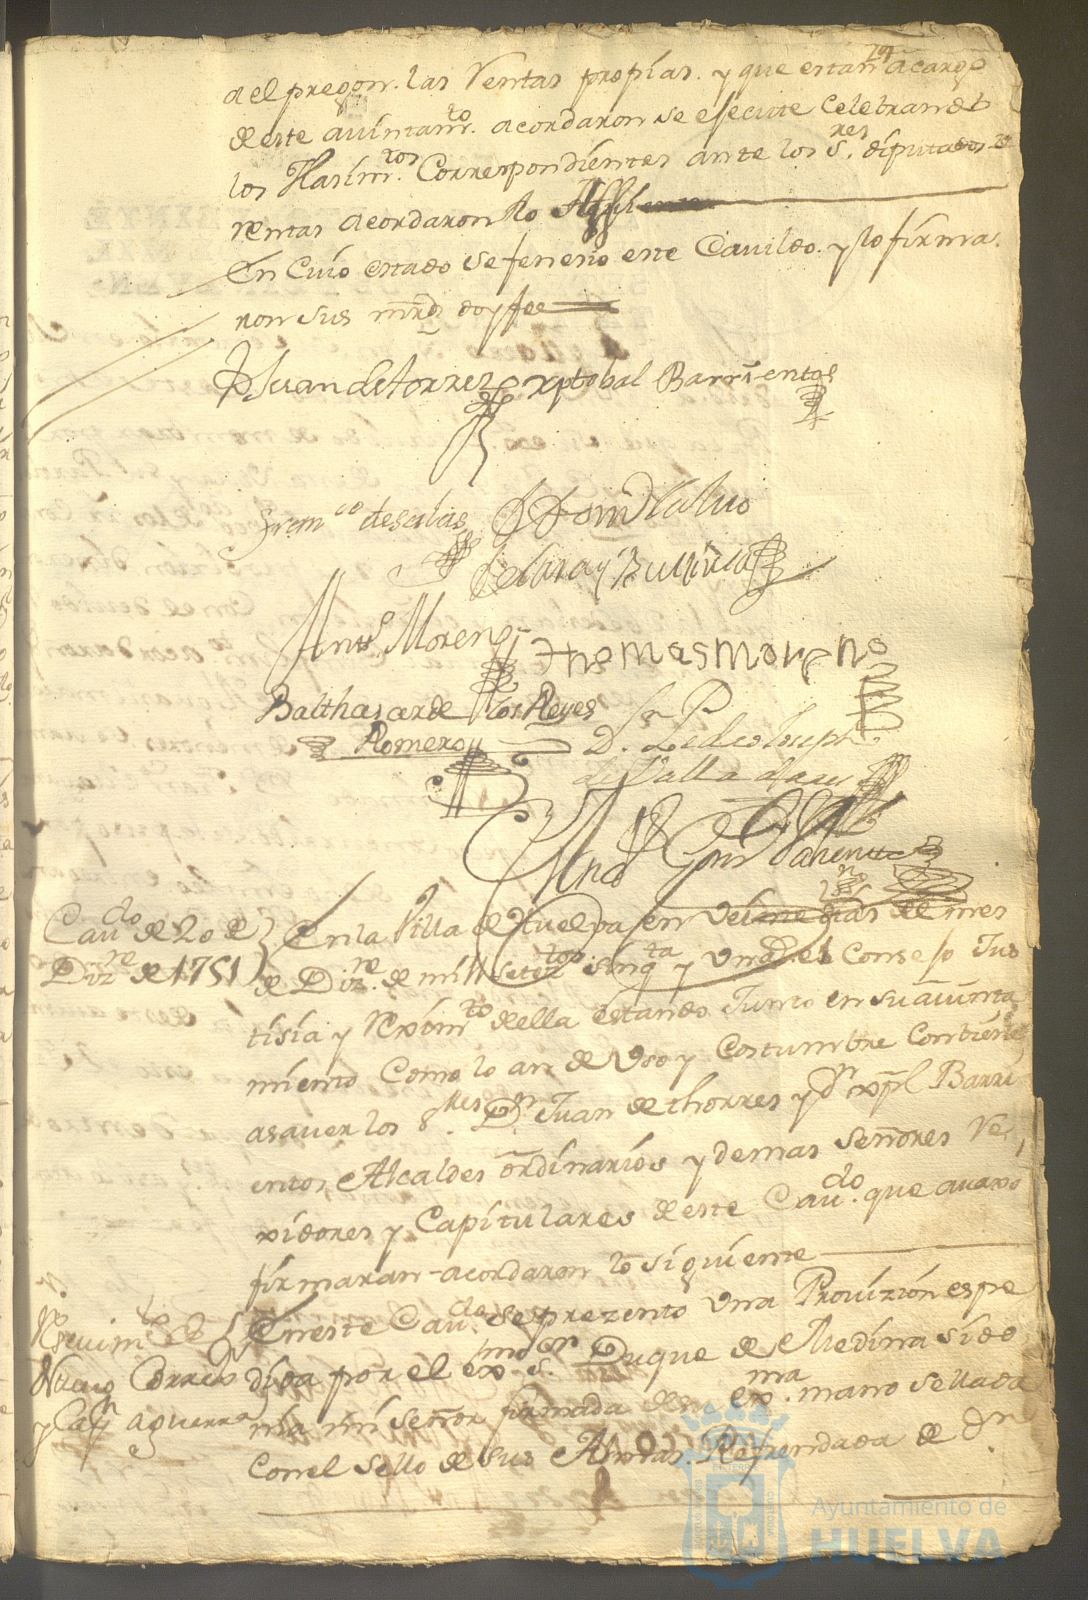 del pregon. las Rentas propias. y que estan acargo
de este avuntamto. acordaron se esecute Celebrando
los Hasimtos. Correspondientes ante los Sres. diputados de
rentas acordaron lo
En Cuio estado se fenesio este Cavildo. y lo firma
ron sus mrds doy fee
Juan de torrez xptobal Barrientos
Franco de salas
de lara y
Anto Moreno thomas moreno
Balthasar de los Reyes
Romero
D. Joseph
Cavdo de 20 de
Dizre de 1751
En la Villa de Huelva en veinte dias de mes
de Dizre. de mill setetos sinqta y Uno el Consejo Jus
tisia y Reximto della estando Junto en su aiunta
miento Como lo an de Uso y Costumbre Combiene
asaver los Sres. Dn. Juan de thorres y Dn xpl Barri
entos Alcaldes ordinarios y demas señores Re
xidores y Capitulares de este Cavdo. que avaxo
firmaran acordaron lo siguiente
Resevimto de
Nuevo Correxor
y Capn aguerra
En este Cavdo. se prezento una Provizion espe
dida por el exmo. Sr. Duque de Medina sido
nia mi señor firmada de su exma. mano sellada
con el sello de sus Armas. Refrendada de Dn.
Ayuntamiento de
HUELVA